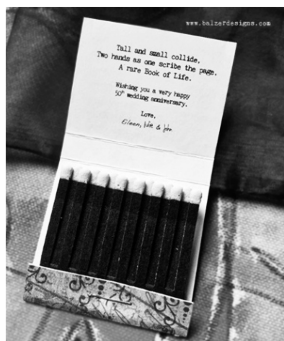 www.balnerdesigns.com
Tall and small collide.
Two hands as one scribe the page.
A rare Book of Life.
Wishing you a very happy
50th wedding anniversary.
Love,